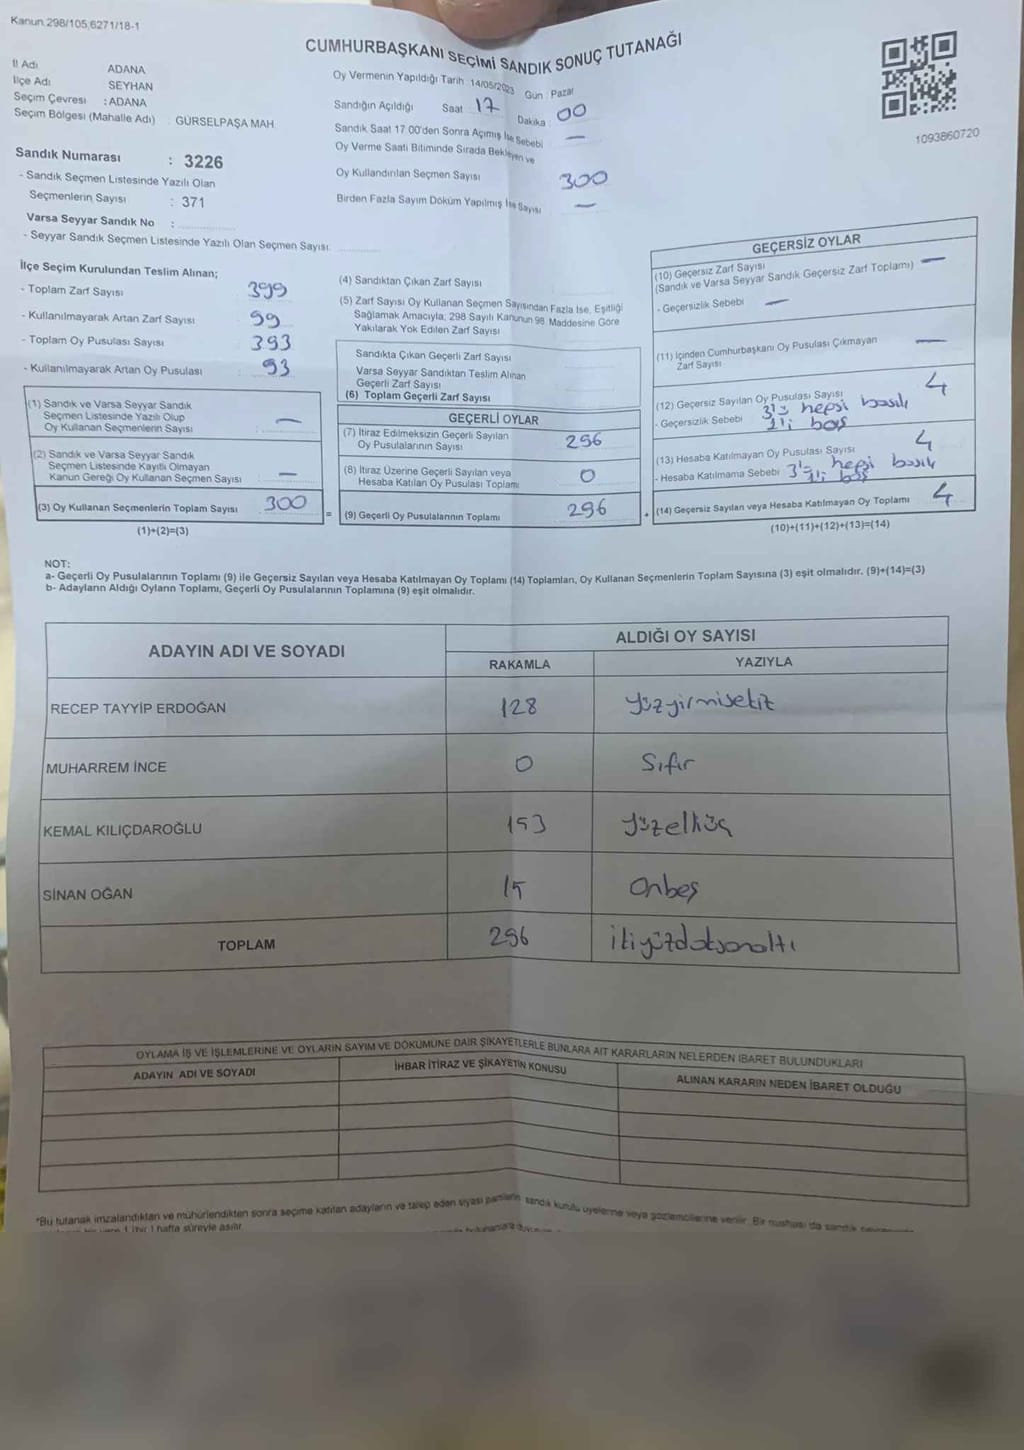 Kanun 298/105,6271/18-1
CUMHURBAŞKANI SEÇİMİ SANDIK SONUÇ TUTANAĞI
İl Adı ADANA
İlçe Adı SEYHAN
Seçim Çevresi : ADANA
Seçim Bölgesi (Mahalle Adı) : GÜRSELPAŞA MAH.
Oy Vermenin Yapıldığı Tarih 14/05/2023 Gün : Pazar
Sandığın Açıldığı Saat 17 Dakika 00
Sandık Saat 17 00'den Sonra Açılmış İse Sebebi —
Oy Verme Saati Bitiminde Sırada Bekleyen ve
Oy Kullandırılan Seçmen Sayısı 300
Birden Fazla Sayım Döküm Yapılmış İse Sayısı —
1093860720
Sandık Numarası : 3226
- Sandık Seçmen Listesinde Yazılı Olan
Seçmenlerin Sayısı : 371
Varsa Seyyar Sandık No :
- Seyyar Sandık Seçmen Listesinde Yazılı Olan Seçmen Sayısı:
İlçe Seçim Kurulundan Teslim Alınan;
- Toplam Zarf Sayısı 399
- Kullanılmayarak Artan Zarf Sayısı 99
- Toplam Oy Pusulası Sayısı 393
- Kullanılmayarak Artan Oy Pusulası : 93
(1) Sandık ve Varsa Seyyar Sandık
Seçmen Listesinde Yazılı Olup
Oy Kullanan Seçmenlerin Sayısı : —
(2) Sandık ve Varsa Seyyar Sandık
Seçmen Listesinde Kayıtlı Olmayan
Kanun Gereği Oy Kullanan Seçmen Sayısı : —
(3) Oy Kullanan Seçmenlerin Toplam Sayısı 300
(1)+(2)=(3)
(4) Sandıktan Çıkan Zarf Sayısı
(5) Zarf Sayısı Oy Kullanan Seçmen Sayısından Fazla İse, Eşitliği
Sağlamak Amacıyla, 298 Sayılı Kanunun 98. Maddesine Göre
Yakılarak Yok Edilen Zarf Sayısı
Sandıkta Çıkan Geçerli Zarf Sayısı
Varsa Seyyar Sandıktan Teslim Alınan
Geçerli Zarf Sayısı
(6) Toplam Geçerli Zarf Sayısı
GEÇERLİ OYLAR
(7) İtiraz Edilmeksizin Geçerli Sayılan
Oy Pusulalarının Sayısı 296
(8) İtiraz Üzerine Geçerli Sayılan veya
Hesaba Katılan Oy Pusulası Toplamı 0
= (9) Geçerli Oy Pusulalarının Toplamı 296
GEÇERSİZ OYLAR
(10) Geçersiz Zarf Sayısı
(Sandık ve Varsa Seyyar Sandık Geçersiz Zarf Toplamı) —
- Geçersizlik Sebebi —
(11) İçinden Cumhurbaşkanı Oy Pusulası Çıkmayan
Zarf Sayısı —
(12) Geçersiz Sayılan Oy Pusulası Sayısı 4
- Geçersizlik Sebebi 3'ü hepsi basılı
1'i boş
(13) Hesaba Katılmayan Oy Pusulası Sayısı 4
- Hesaba Katılmama Sebebi 3'ü hepsi basılı
1'i boş
+ (14) Geçersiz Sayılan veya Hesaba Katılmayan Oy Toplamı 4
(10)+(11)+(12)+(13)=(14)
NOT:
a- Geçerli Oy Pusulalarının Toplamı (9) ile Geçersiz Sayılan veya Hesaba Katılmayan Oy Toplamı (14) Toplamları, Oy Kullanan Seçmenlerin Toplam Sayısına (3) eşit olmalıdır. (9)+(14)=(3)
b- Adayların Aldığı Oyların Toplamı, Geçerli Oy Pusulalarının Toplamına (9) eşit olmalıdır.
ADAYIN ADI VE SOYADI
ALDIĞI OY SAYISI
RAKAMLA YAZIYLA
RECEP TAYYİP ERDOĞAN 128 Yüzyirmisekiz
MUHARREM İNCE 0 Sıfır
KEMAL KILIÇDAROĞLU 153 Yüzelliüç
SİNAN OĞAN 15 Onbeş
TOPLAM 296 ikiyüzdoksanaltı
OYLAMA İŞ VE İŞLEMLERİNE VE OYLARIN SAYIM VE DÖKÜMÜNE DAİR ŞİKAYETLERLE BUNLARA AİT KARARLARIN NELERDEN İBARET BULUNDUKLARI
ADAYIN ADI VE SOYADI İHBAR İTİRAZ VE ŞİKAYETİN KONUSU ALINAN KARARIN NEDEN İBARET OLDUĞU
*Bu tutanak imzalandıktan ve mühürlendikten sonra seçime katılan adayların ve talep eden siyasi partilerin sandık kurulu üyelerine veya gözlemcilerine verilir. Bir nüshası da sandık
1 (bir) hafta süreyle asılır